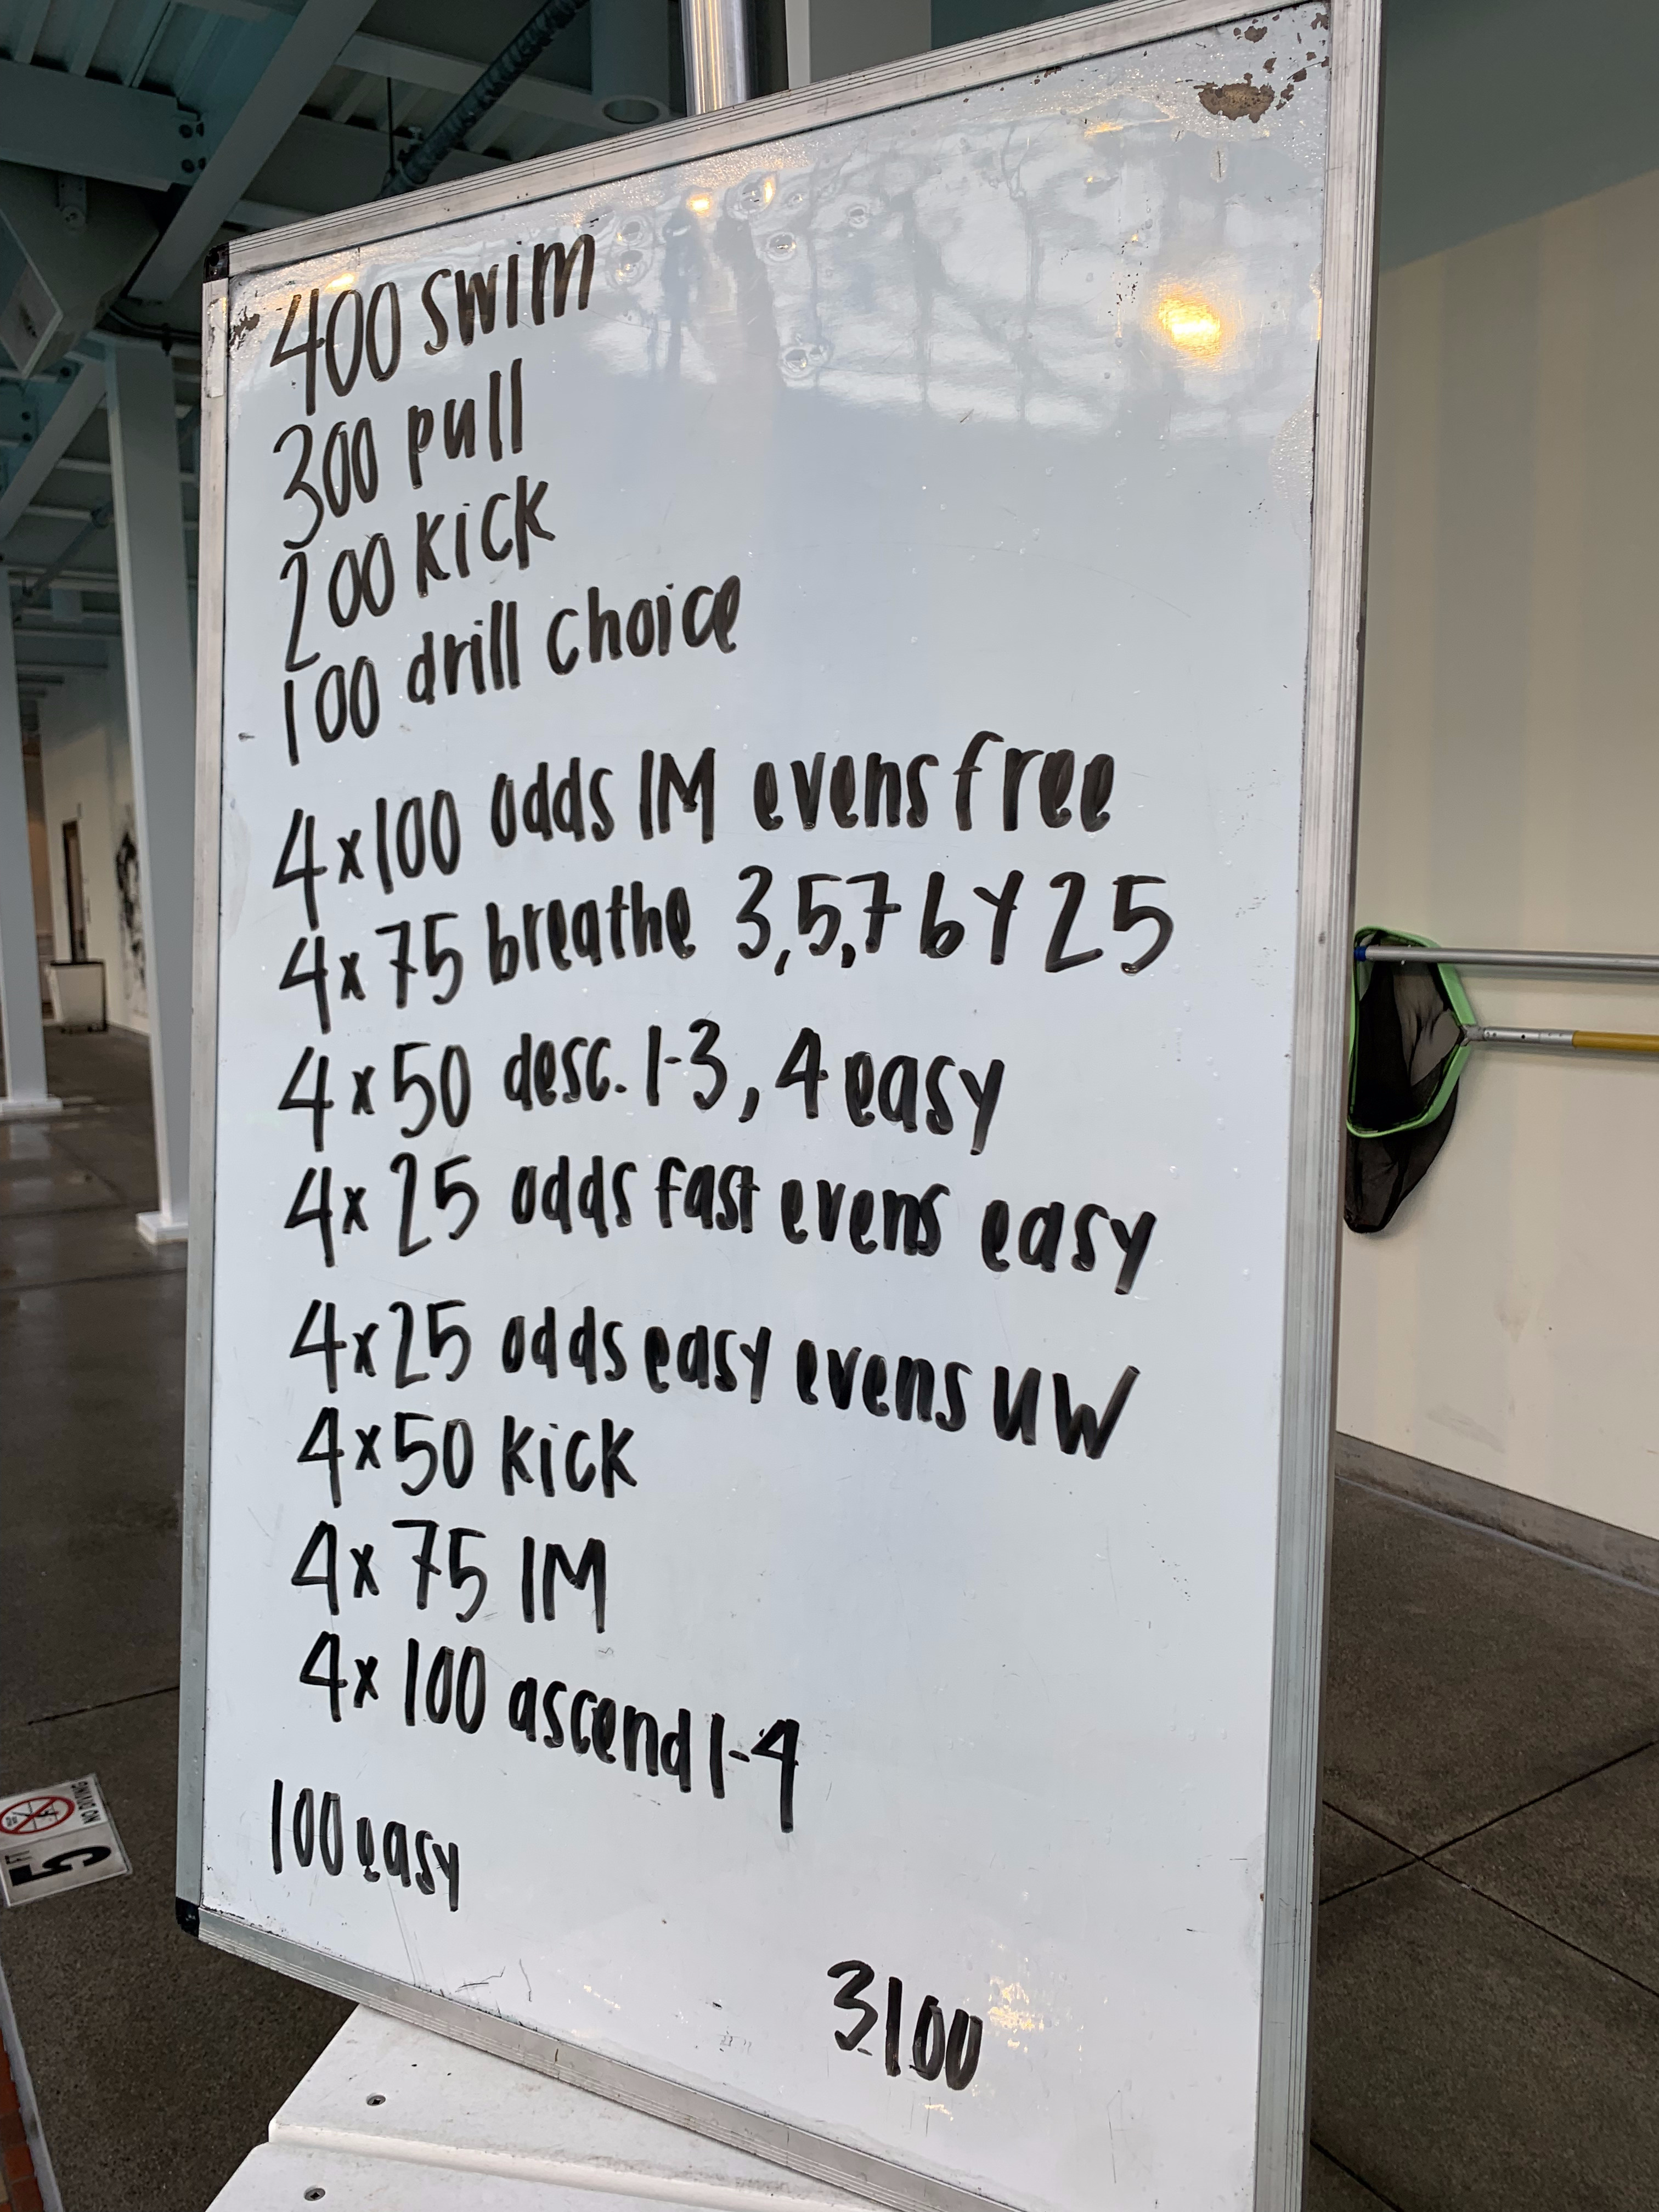 400 swim
300 pull
200 kick
100 drill choice
4x100 odds IM evens free
4x75 breathe 3,5,7 by 25
4x50 desc. 1-3, 4 easy
4x25 odds fast evens easy
4x25 odds easy evens UW
4x50 kick
4x75 IM
4x100 ascend 1-4
100 easy
3100
NO DIVING
5 FT